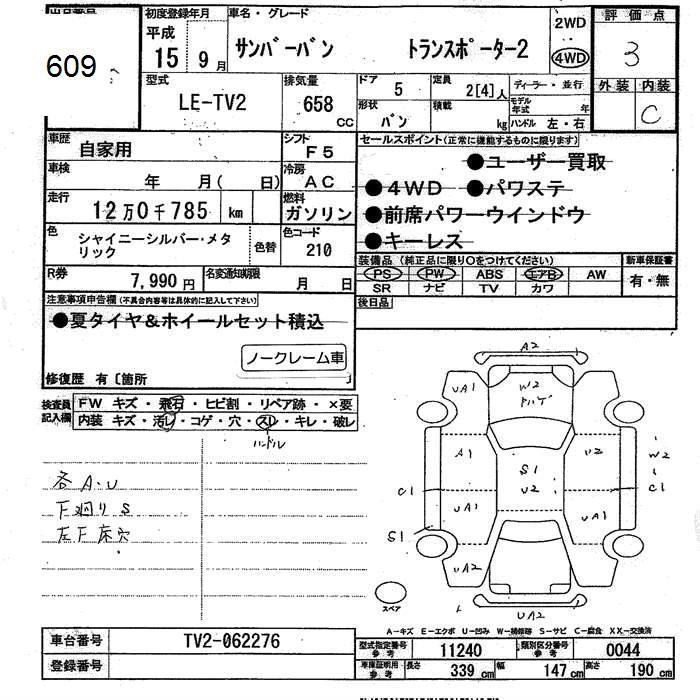 609
初度登録年月
平成 15 9月
車名・グレード
サンバーバン トランスポーター2
2WD
4WD
評価点
3
型式
LE-TV2
排気量
658 CC
ドア 5
定員 2[4]人
ディーラー・並行
形状 バン
積載 kg
モデル年式 年
ハンドル 左・右
外装 内装
C
車歴 自家用
シフト F5
車検 年 月( 日)
冷房 AC
走行 12万0千785 km
燃料 ガソリン
色 シャイニーシルバー・メタリック
色替
色コード 210
R券 7,990円
名変通知期限 月 日
セールスポイント(正常に機能するものに限ります)
●ユーザー買取
●4WD ●パワステ
●前席パワーウインドウ
●キーレス
装備品(純正品に限り○をつけてください)
PS PW ABS エアB AW
SR ナビ TV カワ
新車保証書
有・無
後日品
注意事項申告欄(不具合内容等は具体的に記入して下さい)
●夏タイヤ&ホイールセット積込
ノークレーム車
修復歴 有〔箇所 〕
検査員記入欄
FW キズ・飛石・ヒビ割・リペア跡・×要
内装 キズ・汚レ・コゲ・穴・スレ・キレ・破レ
ハンドル
各A・U
下廻りS
左F床穴
A2
UA1
W2
ハゲ
A1
S1
U2
U2
W2
C1
C1
UA1
UA1
S1
UA2
UA2
スペア
A―キズ E―エクボ U―凹み W―補修跡 S―サビ C―腐食 XX―交換済
車台番号 TV2-062276
登録番号
型式指定番号 参考 11240
類別区分番号 参考 0044
車庫証明用 参考 長さ 339cm 幅 147cm 高さ 190cm